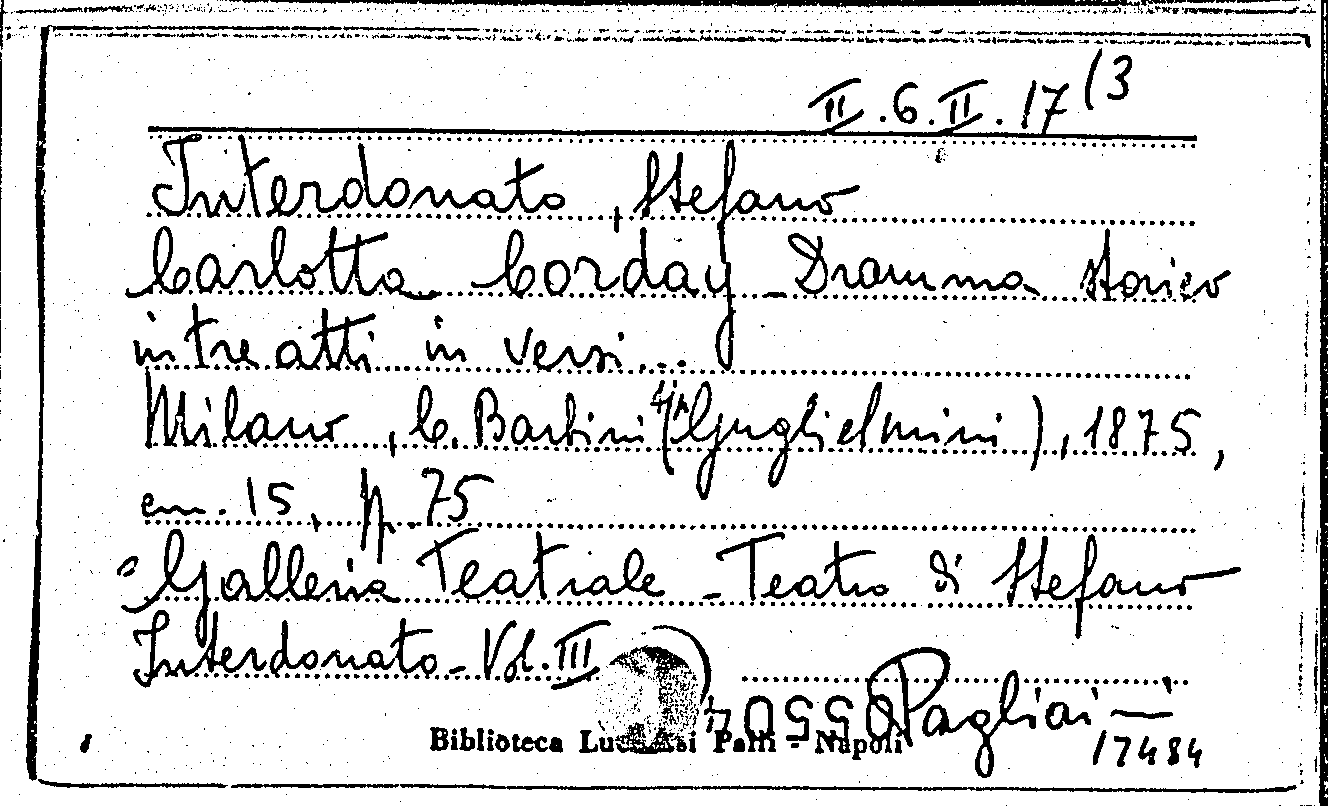 II.6.II.17(3
Interdonato, Stefano
Carlotta Corday - Dramma storico
in tre atti in versi...
Milano, C. Barbini (tip. Guglielmini), 1875,
cm. 15, pp. 75
Galleria Teatrale - Teatro di Stefano
Interdonato - Vol. III
Pagliai -
05504
17484
Biblioteca Lucchesi Palli - Napoli